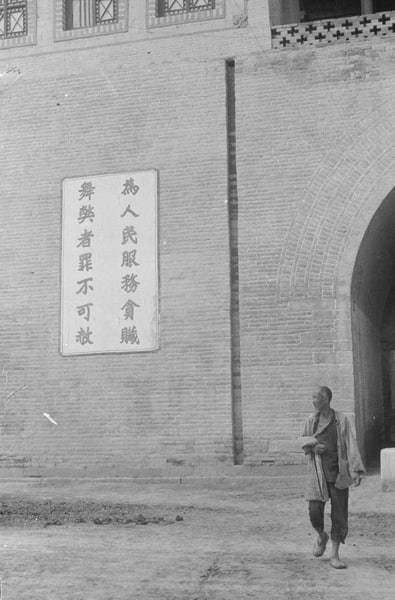 為人民服務貪贓
舞獘者罪不可赦